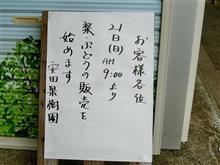 お客様各位
21日(日)AM9:00より
梨・ぶどうの販売を
始めます
安田果樹園